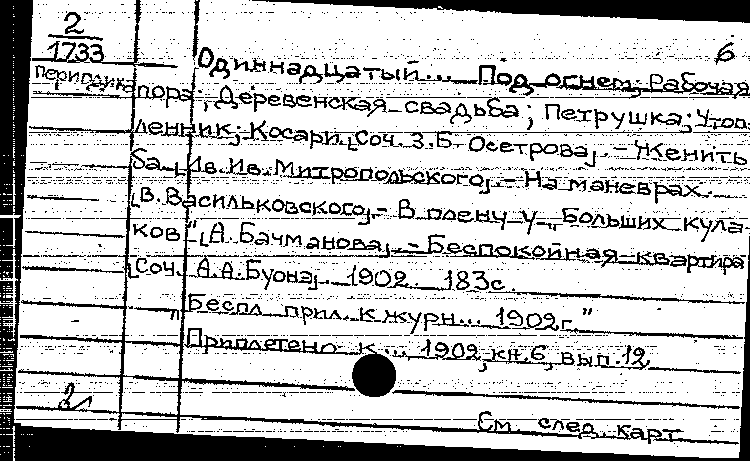 2
1733
6
Периодика
Одиннадцатый... Под огнем; Рабочая
пора; Деревенская свадьба; Петрушка; Утоп-
ленник; Косари. [Соч. З.Б. Осетрова]. - Женить
ба. [Ив. Ив. Митропольского]. - На маневрах.
[В. Васильковского]. - В плену у „Больших кула-
ков" [А. Бачманова]. - Беспокойная квартира
[Соч. А.А. Буона]. 1902. 183с.
„Беспл прил. к журн... 1902г."
Приплетено к..., 1902, кн.6, вып.12
2л
См. след. карт.